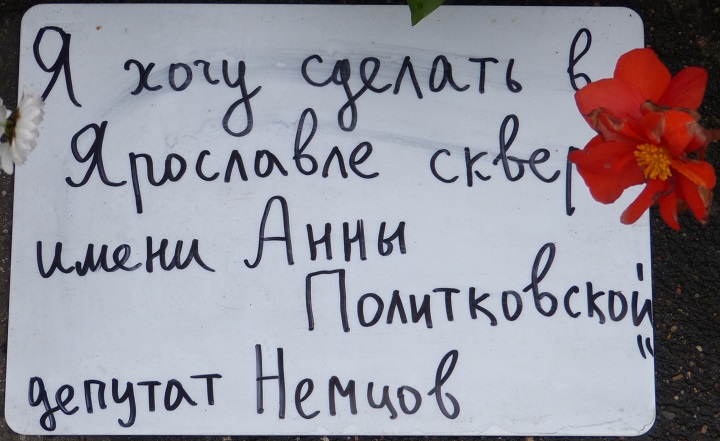 Я хочу сделать в
Ярославле сквер
имени Анны
Политковской"
депутат Немцов